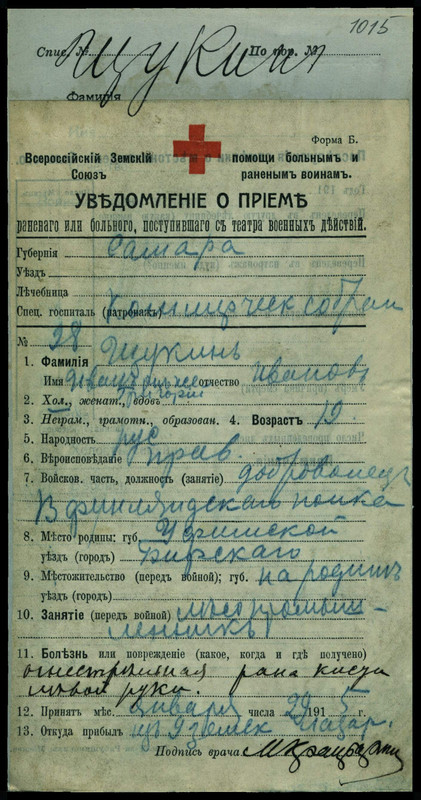 1015
Спис. № По пор. №
Щукин
Фамилія
Форма Б.
Всероссійскій Земскій Союзъ помощи больнымъ и раненымъ воинамъ.
УВѢДОМЛЕНІЕ О ПРІЕМѢ
раненаго или больного, поступившаго съ театра военныхъ дѣйствій.
Губернія Самара
Уѣздъ
Лѣчебница
Спец. госпиталь (патронажъ) Коммерческ собран
№ 28
1. Фамилія Щукинъ
Имя отчество Иванов
2. Хол., женат., вдовъ
3. Неграм., грамотн., образован. 4. Возрастъ 19.
5. Народность рус
6. Вѣроисповѣданіе прав.
7. Войсков. часть, должность (занятіе) доброволецъ
Финляндскаго полка
8. Мѣсто родины: губ. Уфимской
уѣздъ (городъ) Бирскаго
9. Мѣстожительство (передъ войной); губ. на родинѣ
уѣздъ (городъ)
10. Занятіе (передъ войной)
11. Болѣзнь или поврежденіе (какое, когда и гдѣ получено)
огнестрѣльная рана кисти
лѣвой руки.
12. Принятъ мѣс. Января числа 29 1915
13. Откуда прибылъ изъ
Подпись врача